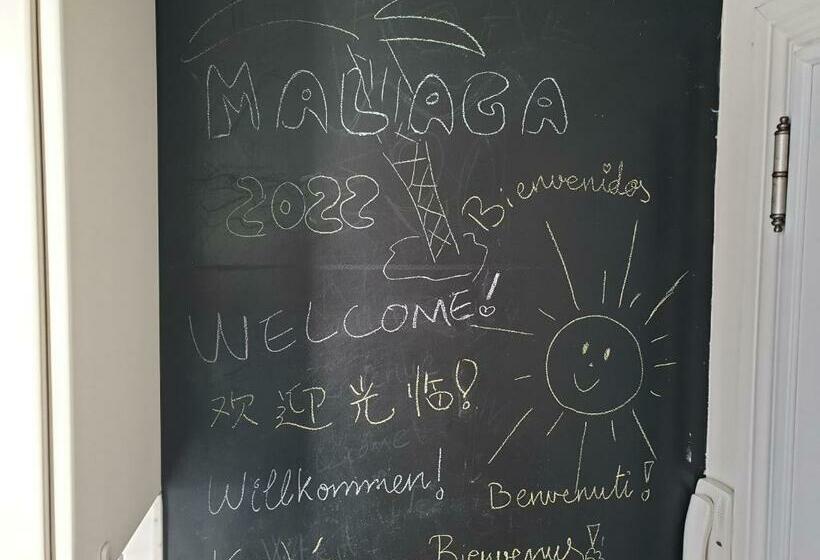 MALAGA
2022
Bienvenidos
WELCOME!
欢迎光临!
Willkommen!
Benvenuti!
Bienvenus!